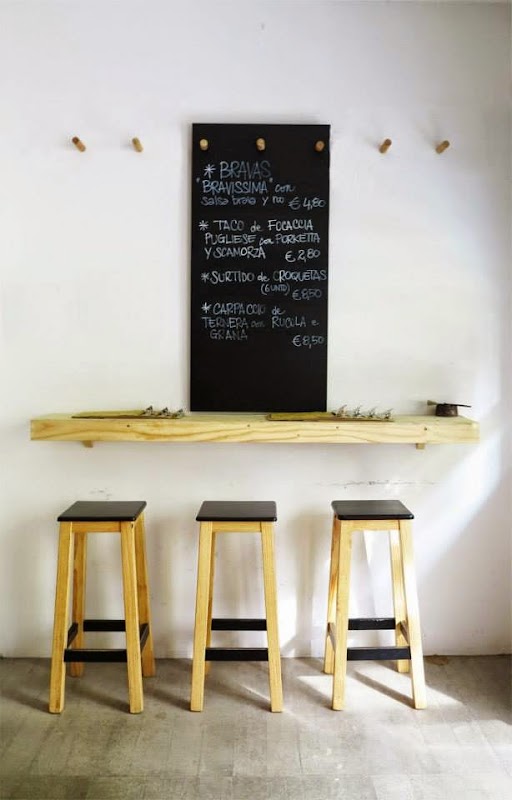 * BRAVAS
"BRAVISSIMA" con
salsa brava y no €4,80
* TACO de FOCACCIA
PUGLIESE con PORKETTA
Y SCAMORZA €2,80
* SURTIDO de CROQUETAS
(6 UNID) €8,50
* CARPACCIO de
TERNERA con RUCOLA e
GRANA €8,50